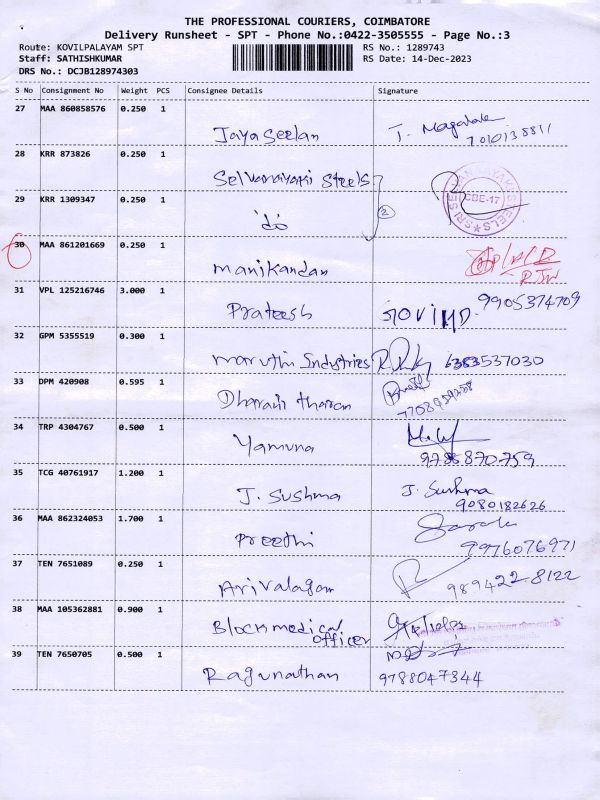 THE PROFESSIONAL COURIERS, COIMBATORE
Delivery Runsheet - SPT - Phone No.:0422-3505555 - Page No.:3
Route: KOVILPALAYAM SPT RS No.: 1289743
Staff: SATHISHKUMAR RS Date: 14-Dec-2023
DRS No.: DCJB128974303
S No Consignment No Weight PCS Consignee Details Signature
27 MAA 860858576 0.250 1
Jayaseelan
7010138811
28 KRR 873826 0.250 1
Selvanayaki Steels
29 KRR 1309347 0.250 1
2
CBE-17
'do
30 MAA 861201669 0.250 1
Manikandan
31 VPL 125216746 3.000 1
Prateesh 9905374709
32 GPM 5355519 0.300 1
Maruthi Industries
33 DPM 420908 0.595 1
Dharani tharan
34 TRP 4304767 0.500 1
Yamuna
35 TCG 40761917 1.200 1
J. Sushma J. Sushma
9080182626
36 MAA 862324053 1.700 1
Preethi 9976076971
37 TEN 7651089 0.250 1
Arivalagan 989422-8122
38 MAA 105362881 0.900 1
Block medical
officer
39 TEN 7650705 0.500 1
Ragunathan 9788047344